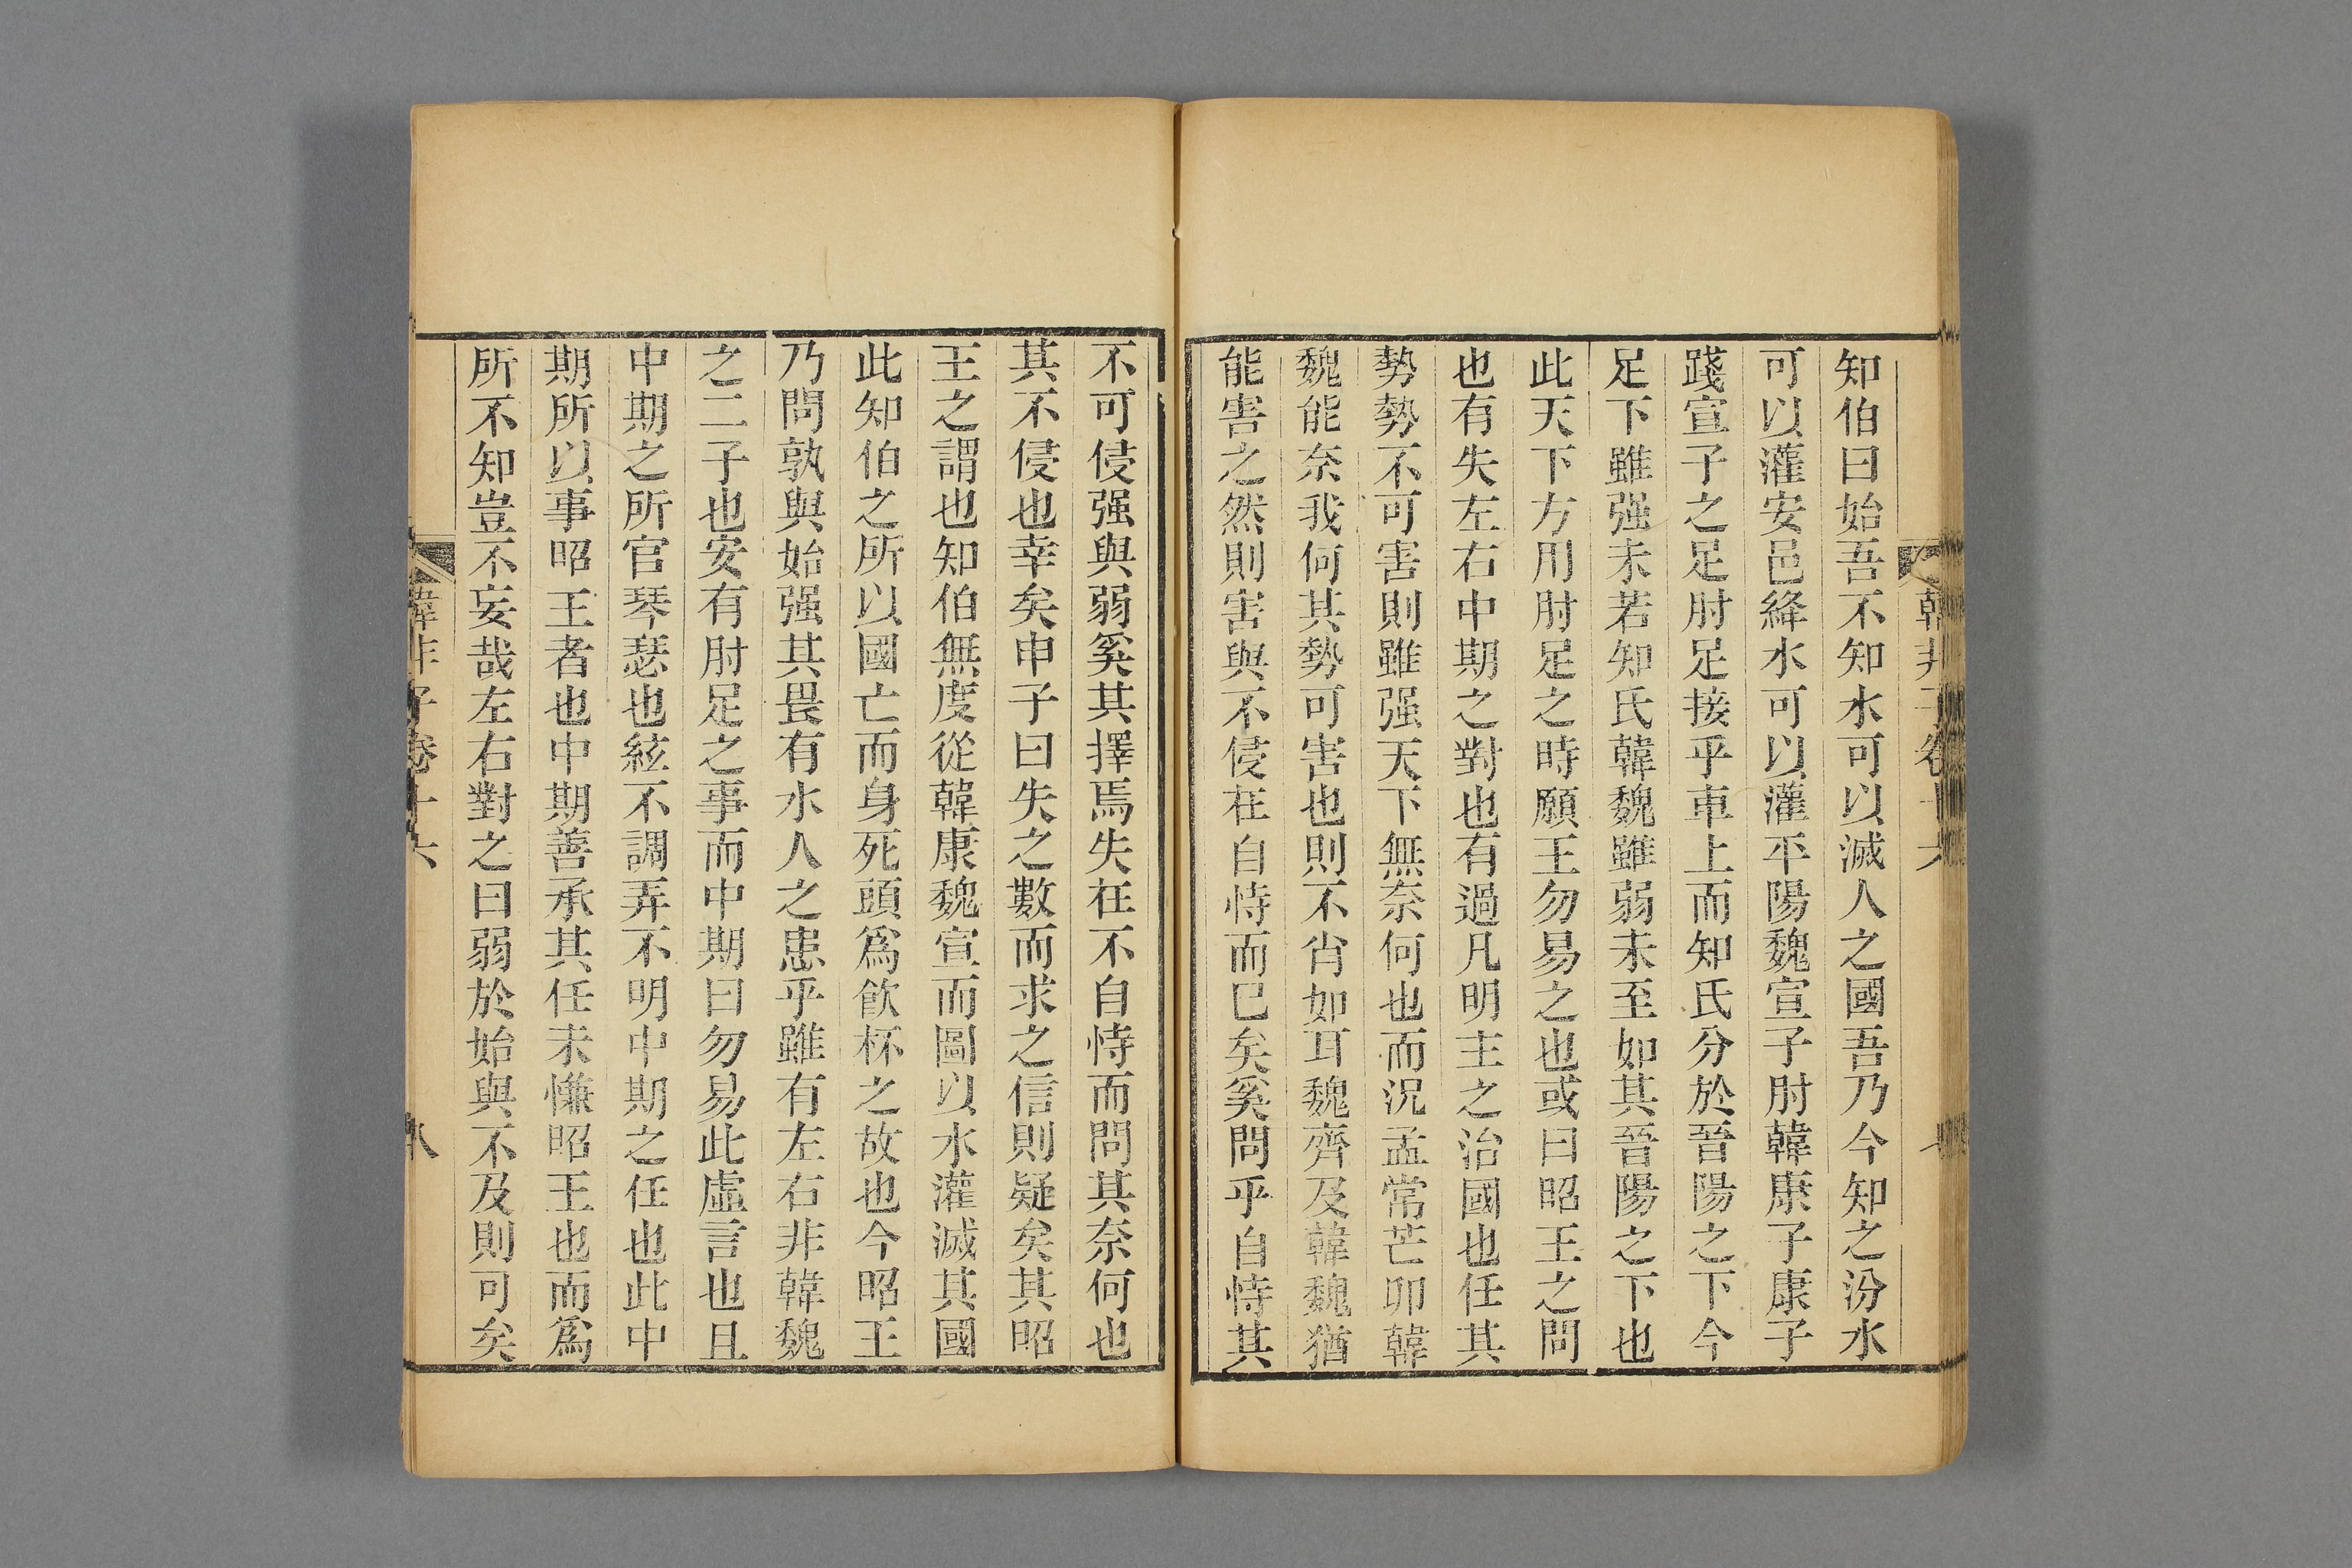 韓非子卷十六
知伯曰始吾不知水可以滅人之國吾乃今知之汾水
可以灌安邑絳水可以灌平陽魏宣子肘韓康子康子
踐宣子之足肘足接乎車上而知氏分於晉陽之下今
足下雖强未若知氏韓魏雖弱未至如其晉陽之下也
此天下方用肘足之時願王勿易之也或曰昭王之問
也有失左右中期之對也有過凡明主之治國也任其
勢勢不可害則雖强天下無奈何也而況孟常芒卯韓
魏能奈我何其勢可害也則不肖如耳魏齊及韓魏猶
能害之然則害與不侵在自恃而巳矣奚問乎自恃其
不可侵强與弱奚其擇焉失在不自恃而問其奈何也
其不侵也幸矣申子曰失之數而求之信則疑矣其昭
王之謂也知伯無度從韓康魏宣而圖以水灌滅其國
此知伯之所以國亡而身死頭爲飮杯之故也今昭王
乃問孰與始强其畏有水人之患乎雖有左右非韓魏
之二子也安有肘足之事而中期曰勿易此虛言也且
中期之所官琴瑟也絃不調弄不明中期之任也此中
期所以事昭王者也中期善承其任未慊昭王也而爲
所不知豈不妄哉左右對之曰弱於始與不及則可矣
韓非子卷十六
八